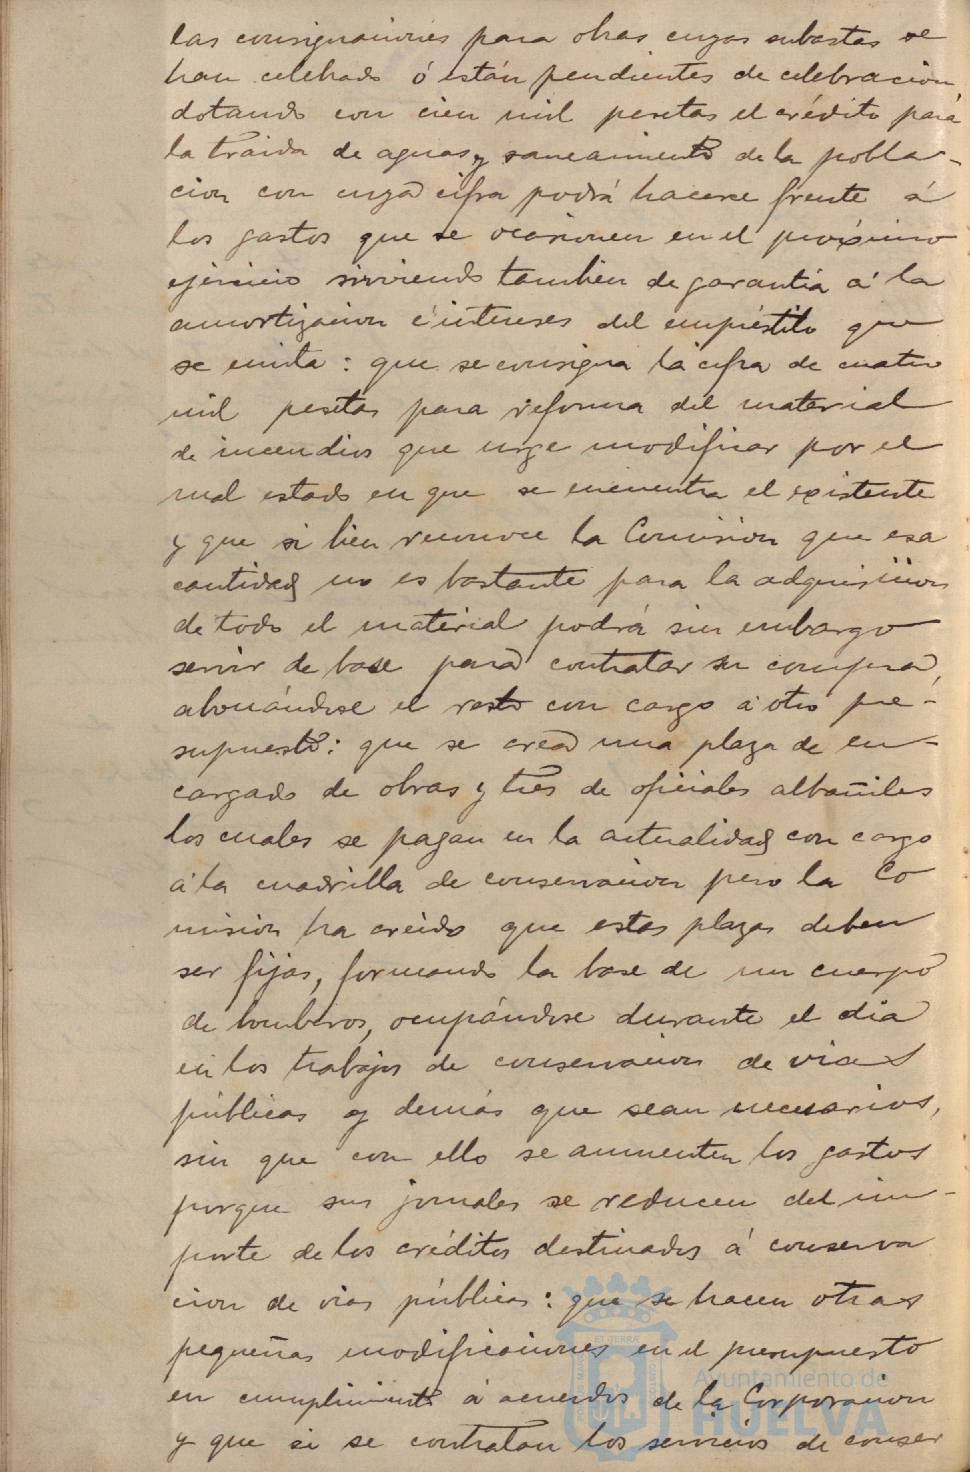 las consignaciones para obras cuyas subastas se
han celebrado ó están pendientes de celebracion,
dotando con cien mil pesetas el crédito para
la traida de aguas y saneamiento de la pobla-
cion con cuya cifra podrá hacerse frente á
los gastos que se ocasionen en el próximo
ejercicio sirviendo tambien de garantia á la
amortizacion é intereses del empréstito que
se emita: que se consigna la cifra de cuatro
mil pesetas para reforma del material
de incendios que urge modificar por el
mal estado en que se encuentra el existente
y que si bien reconoce la Comision que esa
cantidad no es bastante para la adquisicion
de todo el material podrá sin embargo
servir de base para contratar su compra,
abonándose el resto con cargo á otro pre-
supuesto: que se crea una plaza de en-
cargado de obras y tres de oficiales albañiles
los cuales se pagan en la actualidad con cargo
á la cuadrilla de conservacion pero la Co
mision ha creido que estas plazas deben
ser fijas, formando la base de un cuerpo
de bomberos, ocupándose durante el dia
en los trabajos de conservacion de vias
públicas y demás que sean necesarios,
sin que con ello se aumenten los gastos
porque sus jornales se reducen del im-
porte de los créditos destinados á conserva
cion de vias públicas: que se hacen otras
pequeñas modificaciones en el presupuesto
en cumplimiento á acuerdos de la Corporacion
y que si se contratan los servicios de conser
Ayuntamiento de
HUELVA